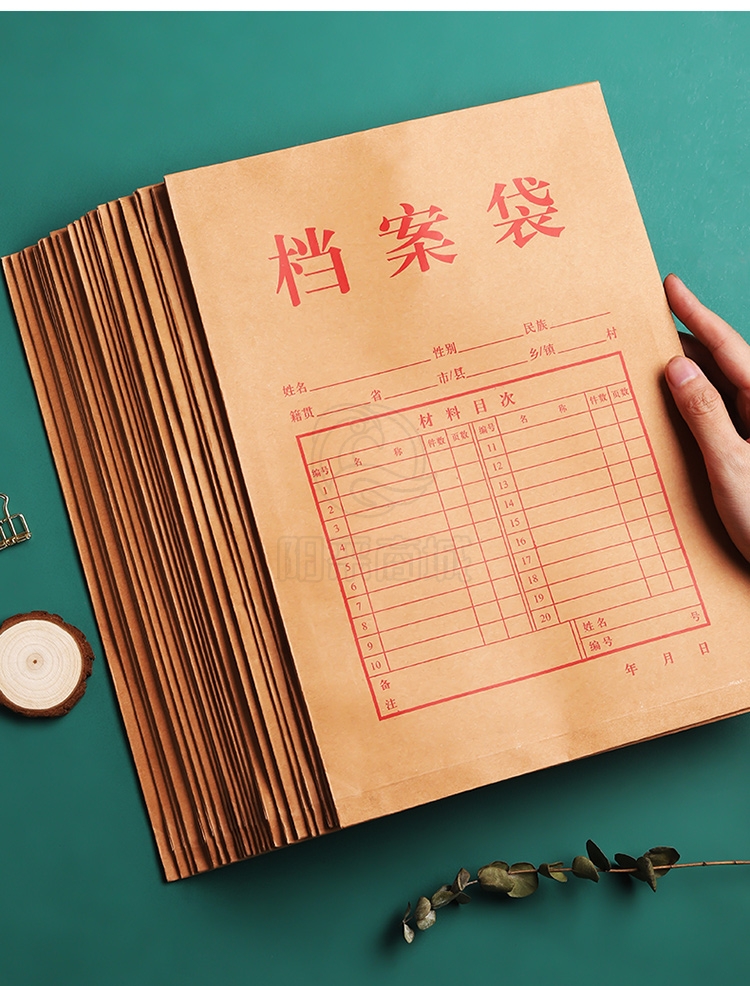 档案袋
姓名 性别 民族
籍贯 省 市/县 乡/镇 村
材料目次
编号 名 称 件数 页数 编号 名 称 件数 页数
1 11
2 12
3 13
4 14
5 15
6 16
7 17
8 18
9 19
10 20
备注 姓名 号
编号
年 月 日